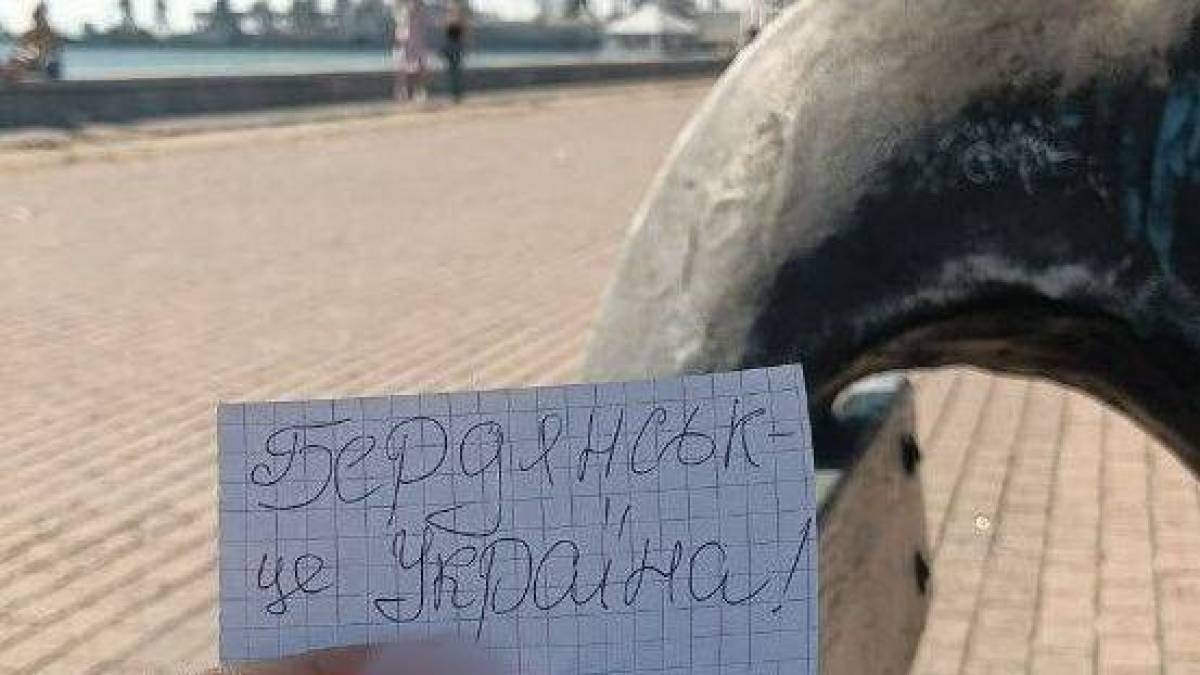 Бердянськ -
це Україна!